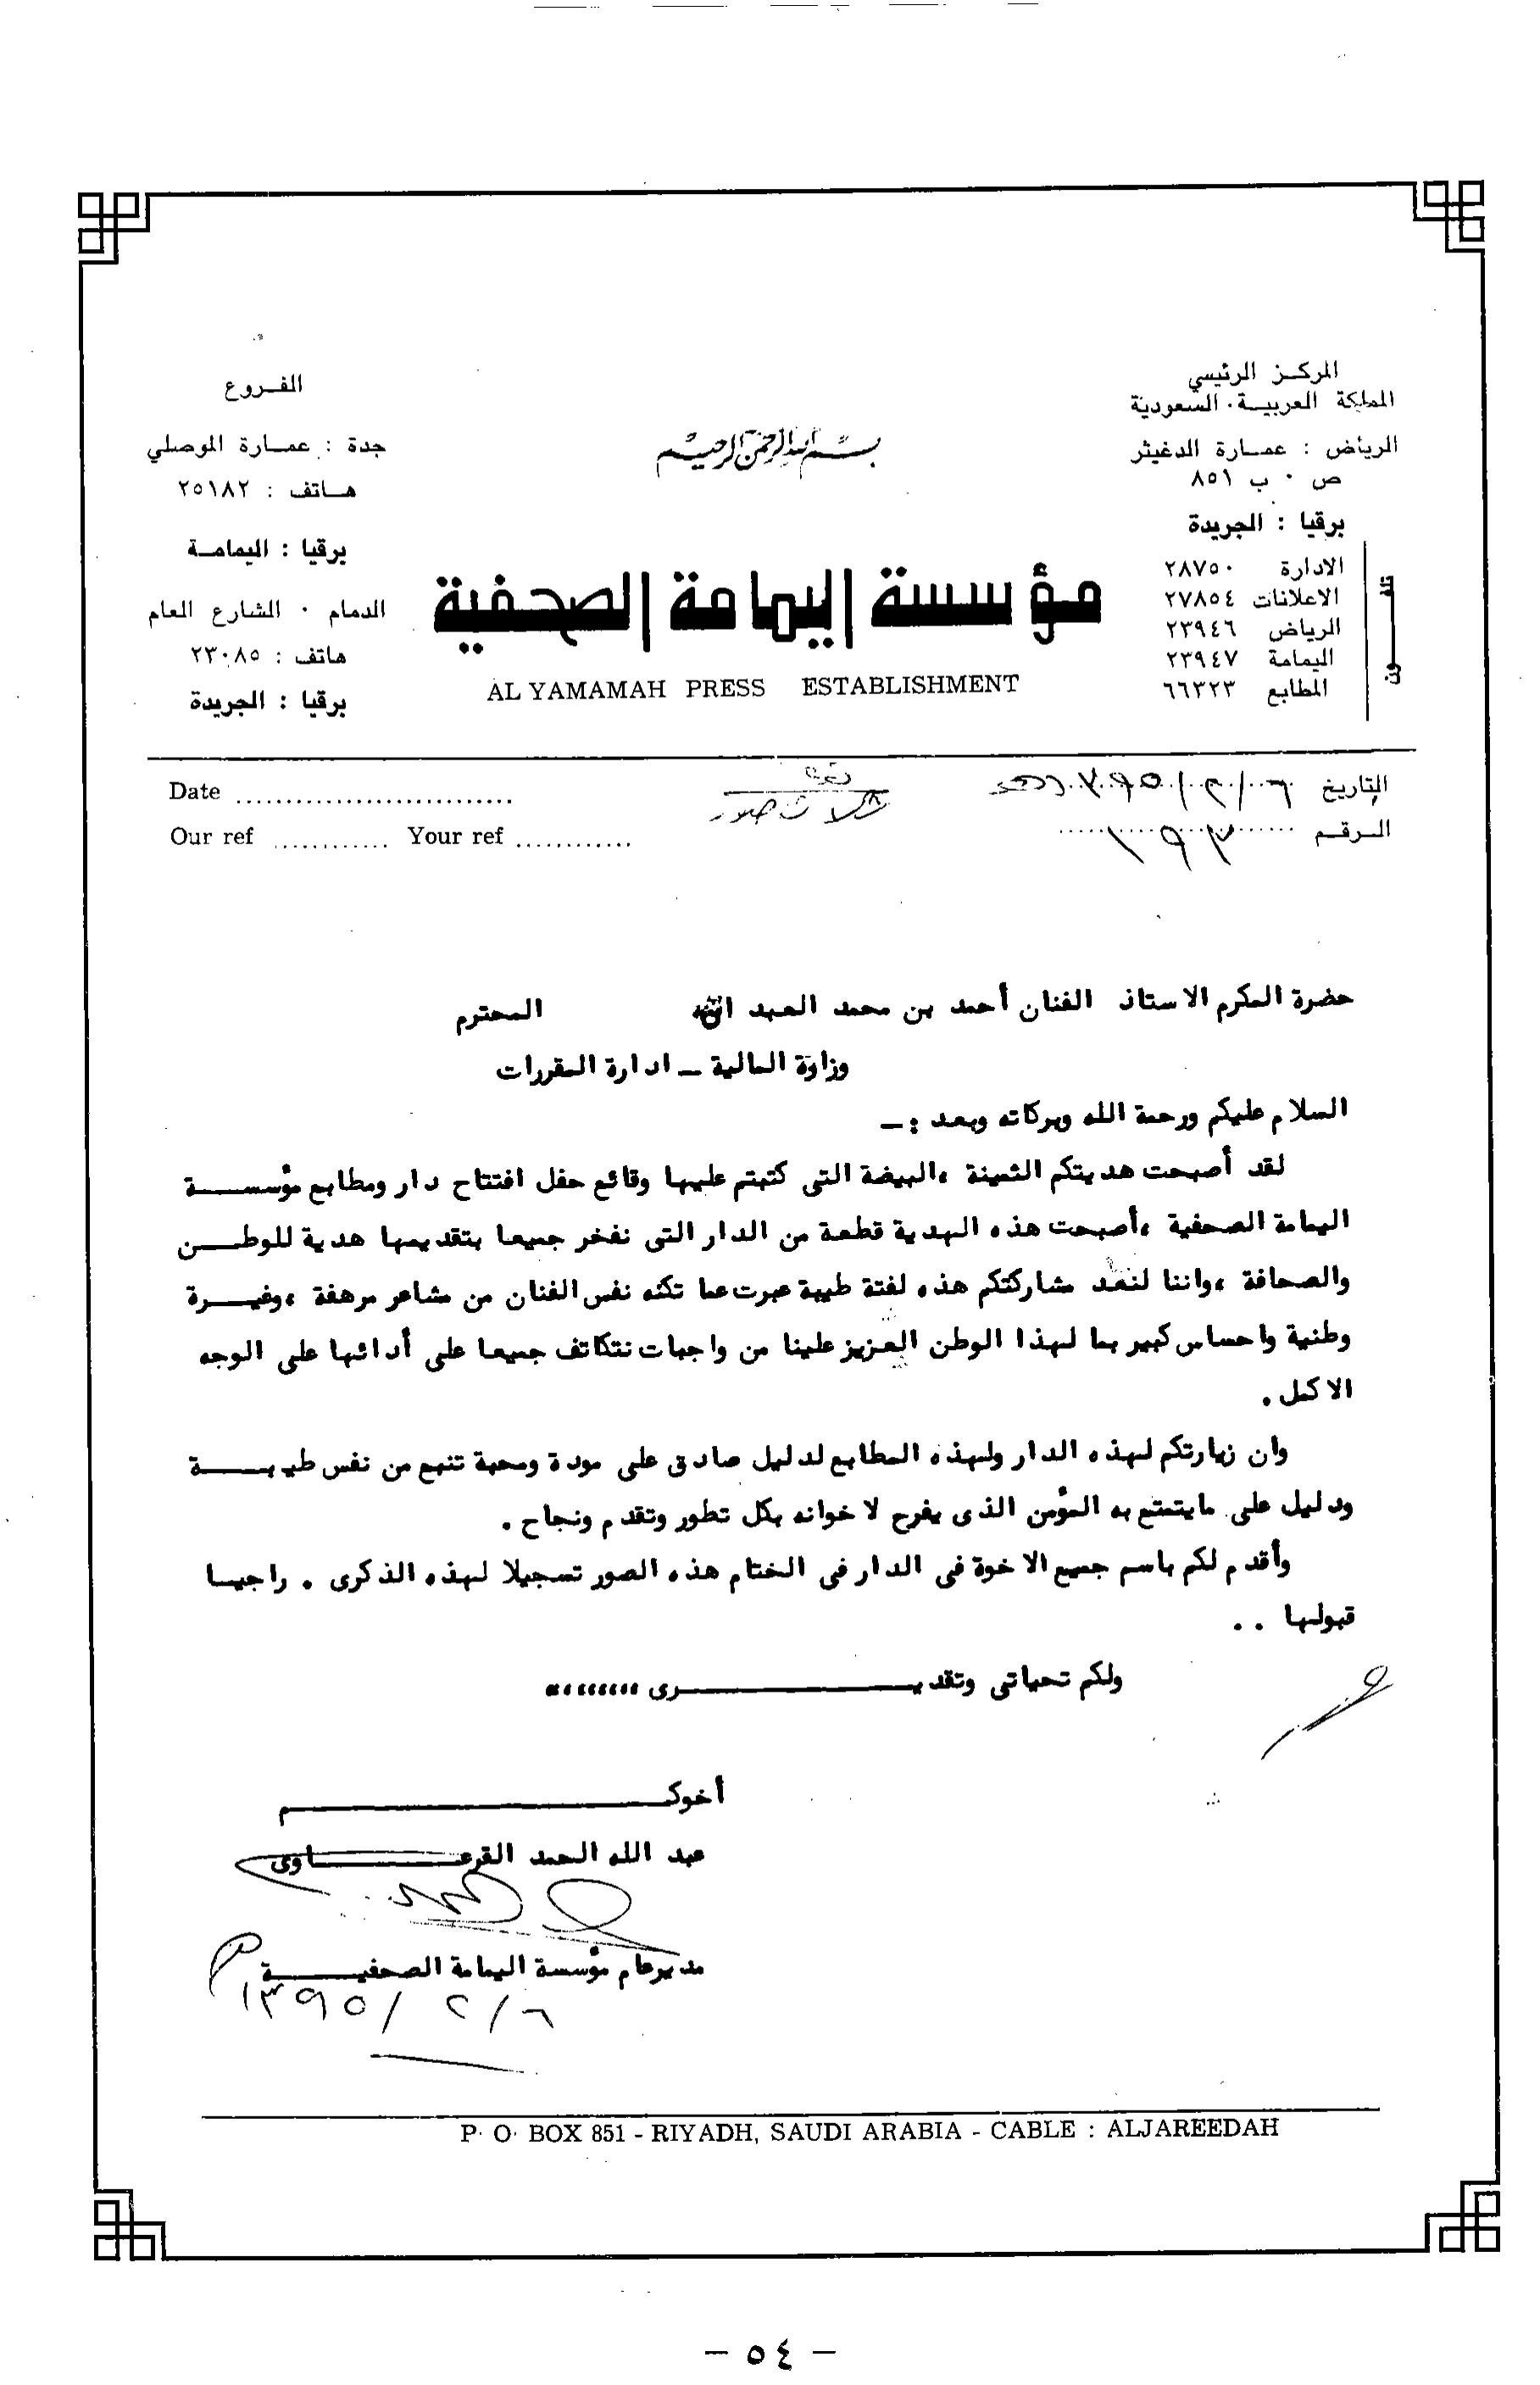 المركز الرئيسي
المملكة العربية السعودية
الرياض : عمارة الدغيثر
ص ٠ ب ٨٥١
برقيا : الجريدة
تلفون
الادارة ٢٨٧٥٠
الاعلانات ٢٧٨٥٤
الرياض ٢٣٩٤٦
اليمامة ٢٣٩٤٧
المطابع ٦٦٣٢٣
بسم الله الرحمن الرحيم
مؤسسة اليمامة الصحفية
AL YAMAMAH PRESS ESTABLISHMENT
الفروع
جدة : عمارة الموصلي
هاتف : ٢٥١٨٢
برقيا : اليمامة
الدمام ٠ الشارع العام
هاتف : ٢٣٠٨٥
برقيا : الجريدة
التاريخ ٦/٢/١٣٩٥
الرقم ١٩٣
Date
Our ref Your ref
حضرة المكرم الاستاذ الفنان أحمد بن محمد العبد الله المحترم
وزارة المالية – ادارة المقررات
السلام عليكم ورحمة الله وبركاته وبعد :–
لقد أصبحت هديتكم الثمينة ،البيضة التى كتبتم عليها وقائع حفل افتتاح دار ومطابع مؤسسة
اليمامة الصحفية ،أصبحت هذه الهدية قطعة من الدار التى نفخر جميعا بتقديمها هدية للوطن
والصحافة ،واننا لنعد مشاركتكم هذه لفتة طيبة عبرت عما تكنه نفس الفنان من مشاعر مرهفة ،وغيرة
وطنية واحساس كبير بما لهذا الوطن العزيز علينا من واجبات نتكاتف جميعا على أدائها على الوجه
الاكمل .
وان زيارتكم لهذه الدار ولهذه المطابع لدليل صادق على مودة ومحبة تنبع من نفس طيبة
ودليل على مايتمتع به المؤمن الذى يفرح لاخوانه بكل تطور وتقدم ونجاح .
وأقدم لكم باسم جميع الاخوة فى الدار فى الختام هذه الصور تسجيلا لهذه الذكرى . راجيا
قبولها . .
ولكم تحياتى وتقديرى ،،،،،،،،
أخوكم
عبد الله الحمد القرعاوى
مدير عام مؤسسة اليمامة الصحفية
٦/٢/١٣٩٥
P. O. BOX 851 - RIYADH, SAUDI ARABIA - CABLE : ALJAREEDAH
– ٥٤ –